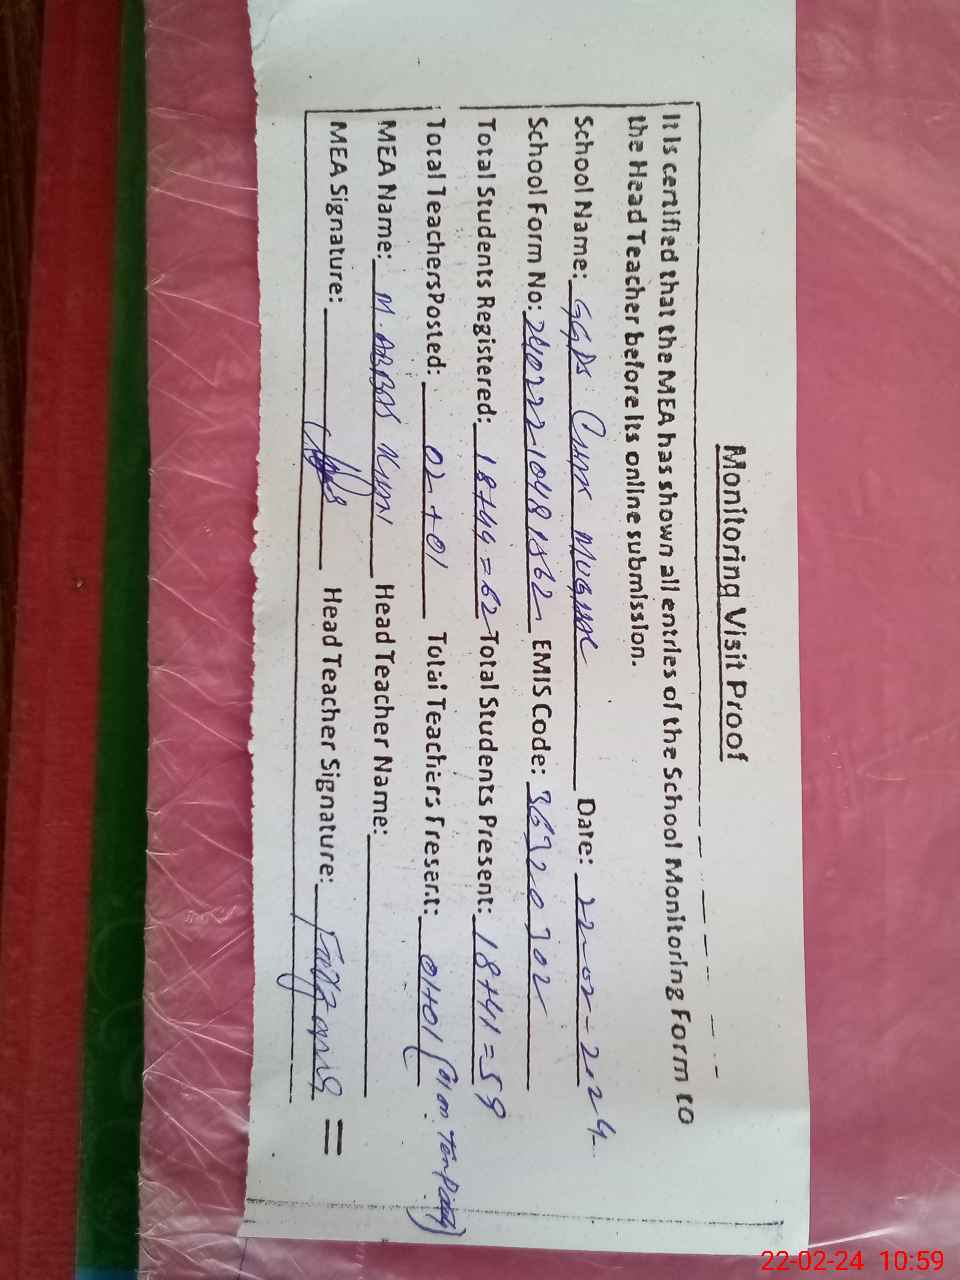 Monitoring Visit Proof
It Is certified that the MEA has shown all entries of the School Monitoring Form to
the Head Teacher before its online submission.
School Name: GGPS Date: 22-02-2024
School Form No: EMIS Code: 36320302
Total Students Registered: 18+44=62 Total Students Present: 18+41=59
Total Teachers Posted: 02+01 Total Teachers Present: 01+01
MEA Name: M. ABBAS Head Teacher Name:
MEA Signature: Head Teacher Signature:
22-02-24 10:59